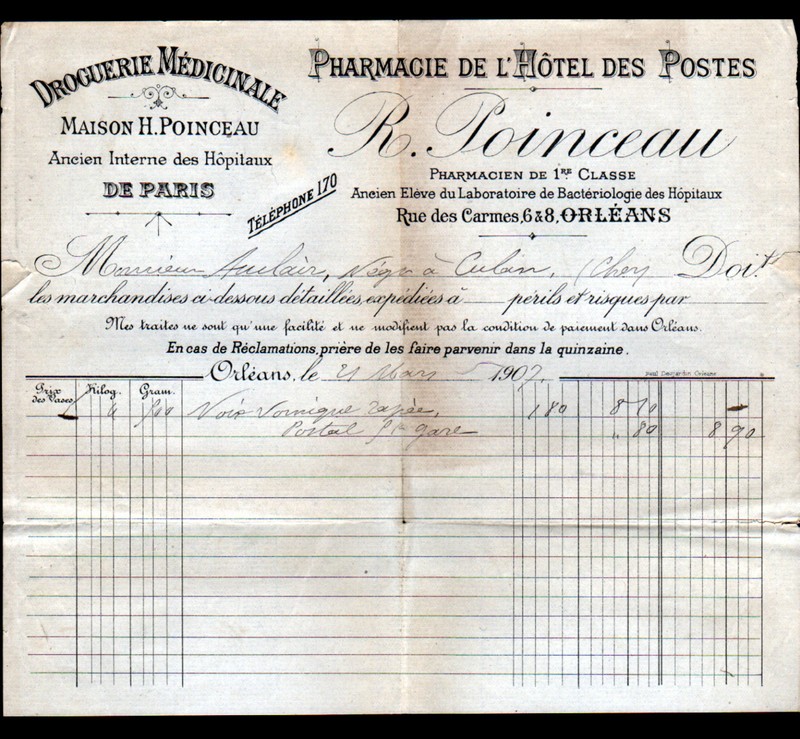 DROGUERIE MÉDICINALE
MAISON H. POINCEAU
Ancien Interne des Hôpitaux
DE PARIS
TÉLÉPHONE 170
PHARMACIE DE L'HÔTEL DES POSTES
R. Poinceau
PHARMACIEN DE 1RE CLASSE
Ancien Elève du Laboratoire de Bactériologie des Hôpitaux
Rue des Carmes, 6 & 8, ORLÉANS
Monsieur Auclair, Négt à Culan, (Cher) Doit
les marchandises ci-dessous détaillées, expédiées à périls et risques par
Mes traites ne sont qu'une facilité et ne modifient pas la condition de paiement dans Orléans.
En cas de Réclamations, prière de les faire parvenir dans la quinzaine.
Orléans, le 21 Mars 1907.
Paul Desjardin Orléans
Prix des Vases Kilog. Gram.
4 500 Noix Vomique rapée, 1 80 8 10
Postal gare " 80 8 90